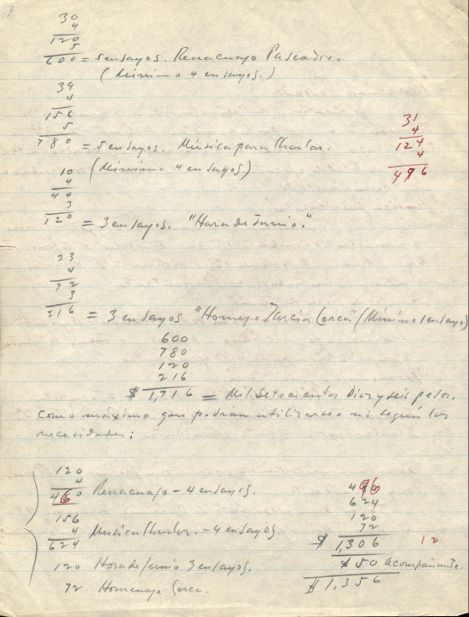 30
4
120
5
600 = 5 ensayos. Renacuajo Paseador.
(Mínimo 4 ensayos.)
39
4
156
5
780 = 5 ensayos. Música para Charlar.
(Mínimo 4 ensayos)
31
4
124
4
496
10
4
40
3
120 = 3 ensayos. "Hora de Junio."
23
4
72
3
216 = 3 ensayos "Homenaje García Lorca" (Mínimo 1 ensayo)
600
780
120
216
$ 1,716 = Mil Setecientos Diez y seis pesos.
Como máximo que podrán utilizarse o no según las
necesidades;
120
4
Renacuajo - 4 ensayos.
156
4
624 Música Charlar. - 4 ensayos.
120 Hora de Junio 3 ensayos.
72 Homenaje Lorca.
496
624
120
72
$ 1,306 12
$ 50 acompañante
$ 1,356